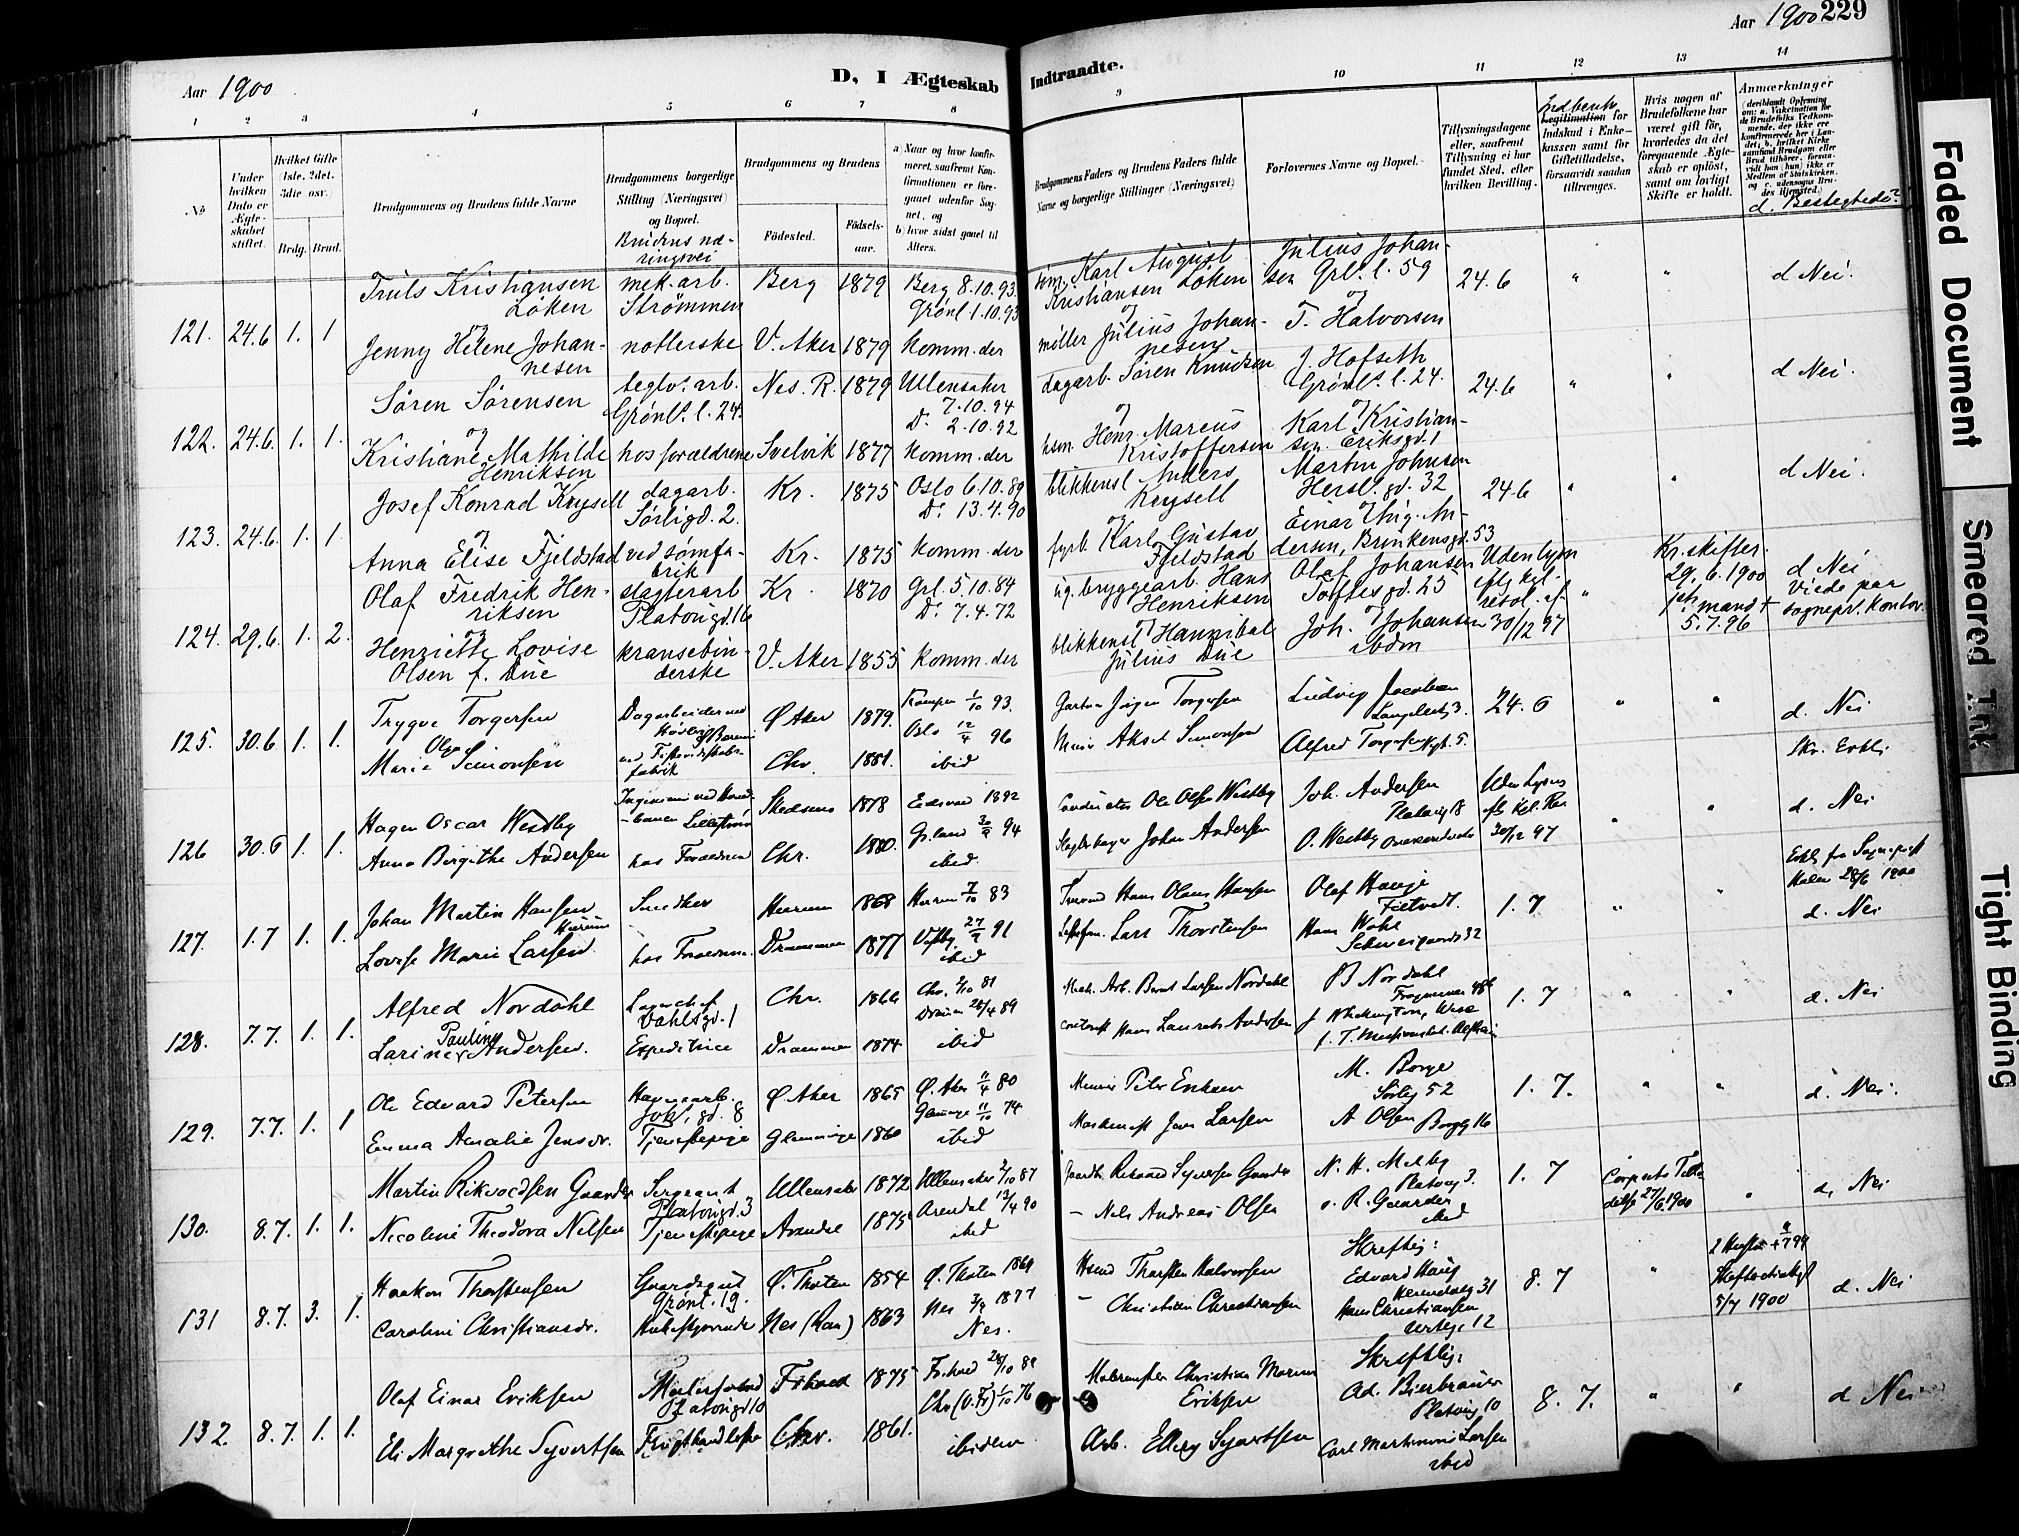 Aar 1900
D, I Ægteskab Indtraadte.
Aar 1900 229
1 2 3 4 5 6 7 8 9 10 11 12 13 14
No
Under hvilken Dato er Ægteskabet stiftet.
Hvilket Gifte (1ste, 2det, 3die osv.)
Brdg. Brud.
Brudgommens og Brudens fulde Navne
Brudgommens borgerlige Stilling (Næringsvei) og Bopæl.
Brudens næringsvei
Brudgommens og Brudens
Fødested. Fødselsaar.
a) Naar og hvor konfirmeret, saafremt Konfirmationen er foregaaet udenfor Sognet, og
b) hvor sidst gaaet til Alters.
Brudgommens Faders og Brudens Faders fulde Navne og borgerlige Stillinger (Næringsvei)
Forlovernes Navne og Bopæl.
Tillysningsdagene eller, saafremt Tillysning ei har fundet Sted, efter hvilken Bevilling.
Legitimation for Indskud i Enkekassen samt for Giftetilladelse, forsaavidt saadan tiltrænges.
Hvis nogen af Brudefolkene har været gift før, hvorledes da det foregaaende Ægteskab er opløst, samt om lovligt Skifte er holdt.
Anmærkninger
(deriblandt Oplysning om: a. Vakcination for de Brudefolks Vedkommende, der ikke ere konfirmerede her i Landet, b. hvilket Kirkesamfund Brudgom eller Brud tilhører, forsaavidt han (hun) ikke er Medlem af Statskirken, og c. udensogns Brudes Hjemsted.)
d. Beslegtede?
Truls Kristiansen Løken mek. arb. Strømmen Berg 1879 Berg 8.10.93. Grønl 1.10.93 Karl August Kristiansen Løken Julius Johansen Grl. l. 59 24.6 " " d Nei.
121. 24.6 1. 1 og
Jenny Helene Johannesen V. Aker 1879 Komm. der møller Julius Johannesen T. Halvorsen
Søren Sørensen teglv. arb. Grønl. l. 24. Nes. R. 1879 Ullensaker 7.10.94 D. 2.10.92 dagarb. Søren Knudsen J. Hofseth Grønl. l. 24. 24.6 " " d Nei.
122. 24.6. 1. 1. og
Kristiane Mathilde Henriksen hos forældrene Svelvik 1877 Komm. der Henr. Marcus Kristoffersen Karl Kristiansen. Eriksgd. 1
Josef Konrad Krysell dagarb. Sørligd. 2. Kr. 1875 Oslo 6.10.89 D. 13.4.90 blikkensl Anders Krysell Martin Johnsen Hersl. gd. 32 24.6 " " d Nei.
123. 24.6. 1. 1. og
Anna Elise Fjeldstad ved sømfabrik Kr. 1875 Komm. der fyrb. Karl Gustav Fjeldstad Einar Thig. Andersen, Brinkensgd. 53
Olaf Fredrik Henriksen slagterarb Platousgd. 16 Kr. 1870 Grl. 5.10.84 D. 7.4.72 bryggearb. Hans Henriksen Olaf Johansen Toftesgd. 25 Uden lysn iflg kgl. resol. af 30/12 97 " Kr. skifter. 29.6.1900 mand + 5.7.96 d Nei Viede paa sognepr. Kontor.
124. 29.6. 1. 2. og
Henriette Lovise Olsen f. Due kransebinderske V. Aker 1855 Komm. der blikkensl Hannibal Julius Due Joh. Johansen ibdm
Trygve Torgersen Dagarbeider ved Ø Aker 1879. Kampen 1/10 93. Oslo 12/4 96 Gartner Jørgen Torgersen Ludvig Jacobsen 24.6 " " d. Nei
125. 30.6 1. 1.
Marie Olga Simonsen Chr. 1881. ibid Murer Aksel Simonsen Alfred Torgersen 5. Skr. Erkl.
Hagen Oscar Westby Lillestrøm Skedsmo 1878 Eidsvold 1892 Conductør Ole Olsen Westby Joh. Andersen Platousg 18 Uden Lysn efter Kgl. Res 30/12 97 " " d. Nei
126 30.6 1. 1.
Anna Birgithe Andersen hos Forældrene Chr. 1880. Grland 94 ibid. Johan Andersen O. Westby
Johan Martin Hansen Snedker Hurum 1868 Hurum 7/10 83 Hans Olaus Hansen Olaf Hauge Filtvedt. 1. 7 " " Erkl. fra Sognepræst 28/6 1900 d. Nei
127. 1.7 1. 1.
Lovise Marie Larsen hos Forældrene Drammen 1877 27/9 91 ibid Lars Thorstensen Hans Wahl Schweigaards 32
Alfred Nordahl Lagerchef Vahlsgd. 1 Chr. 1866 Chr. 2/10 81 28/4 89 Mek. Arb. Bernt Larsen Nordahl B Nordahl 1. 7 " " d. Nei
128. 7.7. 1. 1.
Larine Pauline Andersen. Expeditrice Drammen 1874 ibid Hans Laurits Andersen
Ole Edvard Petersen Havnearb. Ø. Aker 1865 Ø. Aker 11/4 80 Murer Peter Eriksen M. Borge Sørlig 52 1. 7. " " d. Nei.
129. 7.7. 1. 1
Emma Amalie Jensdr. Tjenestepige Glemminge 1860 Glemminge 11/10 74 ibid Jens Larsen A Olsen Borgg 16
Martin Rikvodsen Gaarder Sergeant Platousgd. 3 Ullensaker 1872 Ullensaker 2/10 87 Arendal 13/4 90 Syversen Gaarder N. H. Melby Platousg 3. 1. 7 Corpsets Tilladelse 27/6 1900 " d. Nei
130. 8.7. 1. 1.
Nicoline Theodora Nilsen Tjenestepige Arendal 1875 ibid – Nils Andreas Olsen o. R. Gaarder ibid
Haakon Thorstensen Gaardsgut Grønl. 19. Ø. Thoten 1854 Ø. Thoten 1869 Thorsten Halvorsen Skriftlig: Edvard Haug 31 8. 7 " 2 Hustru + 99 5/7 1900 d. Nei
131 8.7. 3. 1.
Caroline Christiansdr. Nes (Rom) 1863 Nes 1877 Nes. – Christian Christiansen Hans Christiansen 12
Olaf Einar Eriksen Malersvend Platousgd 10 1875 28/10 89 Malermester Christian Eriksen Skriftlig: Ad. Bierbrauer Platousg 10 8. 7. " " d Nei
132. 8.7. 1. 1.
Eli Margrethe Syvertsen Frugthandlerske Chr. 1861. Chr (V.Fr) 1/10 76 ibidem Arb. Ellev Syvertsen Carl Martinius Larsen ibid
Faded Document
Smeared Ink
Tight Binding